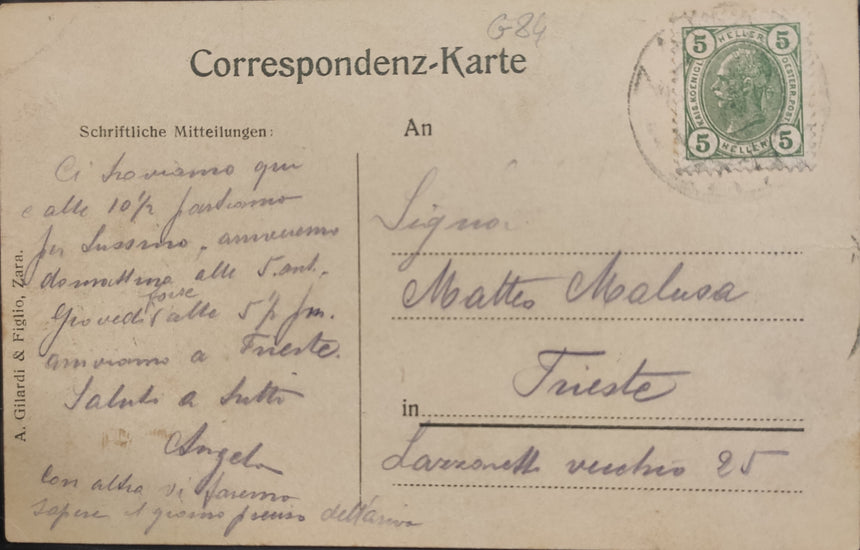 G84
Correspondenz-Karte
5 HELLER 5
KAIS. KOENIGL. OESTERR. POST
5 HELLER 5
Schriftliche Mitteilungen:
Ci troviamo qui
e alle 10½ partiamo
per Lussino, arriveremo
domattina alle 5. ant.
Giovedì forse alle 5½ pm.
arriviamo a Trieste.
Saluti a tutti
Angelo
Con altra vi faremo
sapere il giorno preciso dell'arivo
A. Gilardi & Figlio, Zara.
An
Signor
Matteo Malusa
in Trieste
Lazzaretto vecchio 25